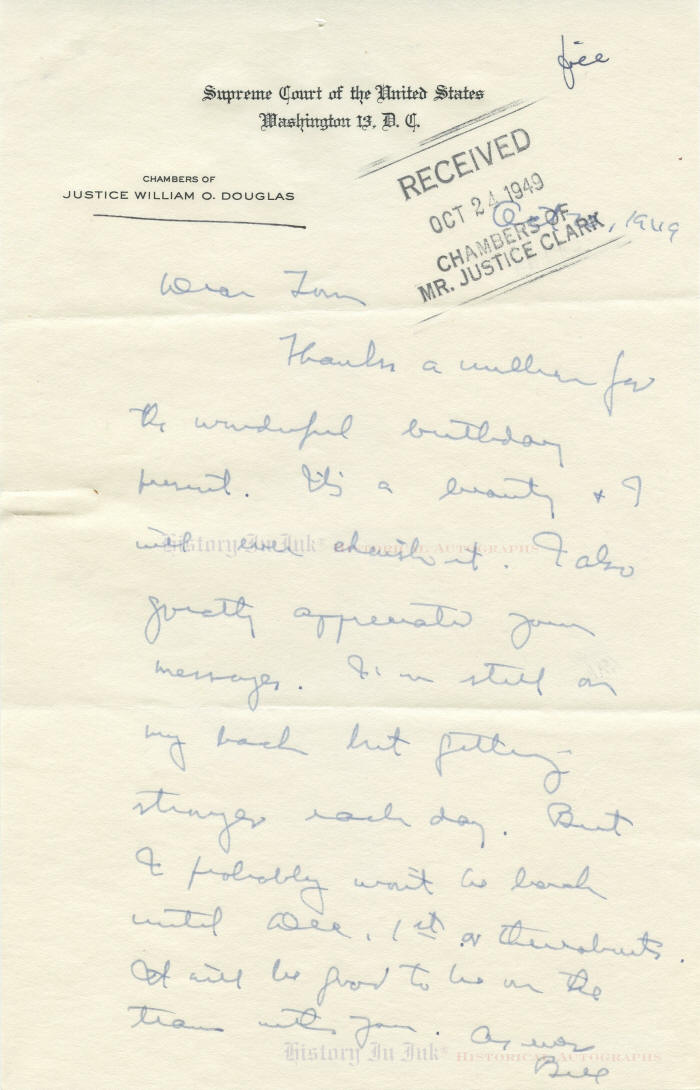 file
Supreme Court of the United States
Washington 13, D. C.
CHAMBERS OF
JUSTICE WILLIAM O. DOUGLAS
RECEIVED
OCT 24 1949
CHAMBERS OF
MR. JUSTICE CLARK
, 1949
Dear Tom
Thanks a million for
the wonderful birthday
present. It's a beauty & I
will ever cherish it. I also
greatly appreciated your
messages. I'm still on
my back but getting
stronger each day. But
I probably won't be back
until Dec. 1st or thereabouts.
It will be good to be on the
team with you. As ever
Bill
History In Ink® HISTORICAL AUTOGRAPHS
History In Ink® HISTORICAL AUTOGRAPHS